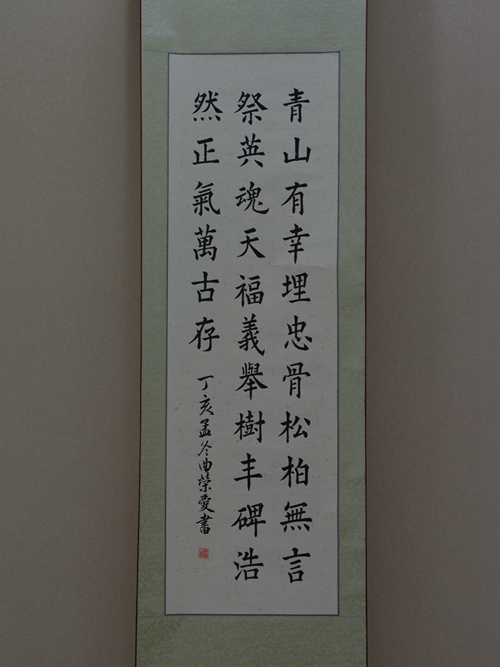 青山有幸埋忠骨松柏無言
祭英魂天福義舉樹丰碑浩
然正氣萬古存
丁亥孟冬曲榮愛書